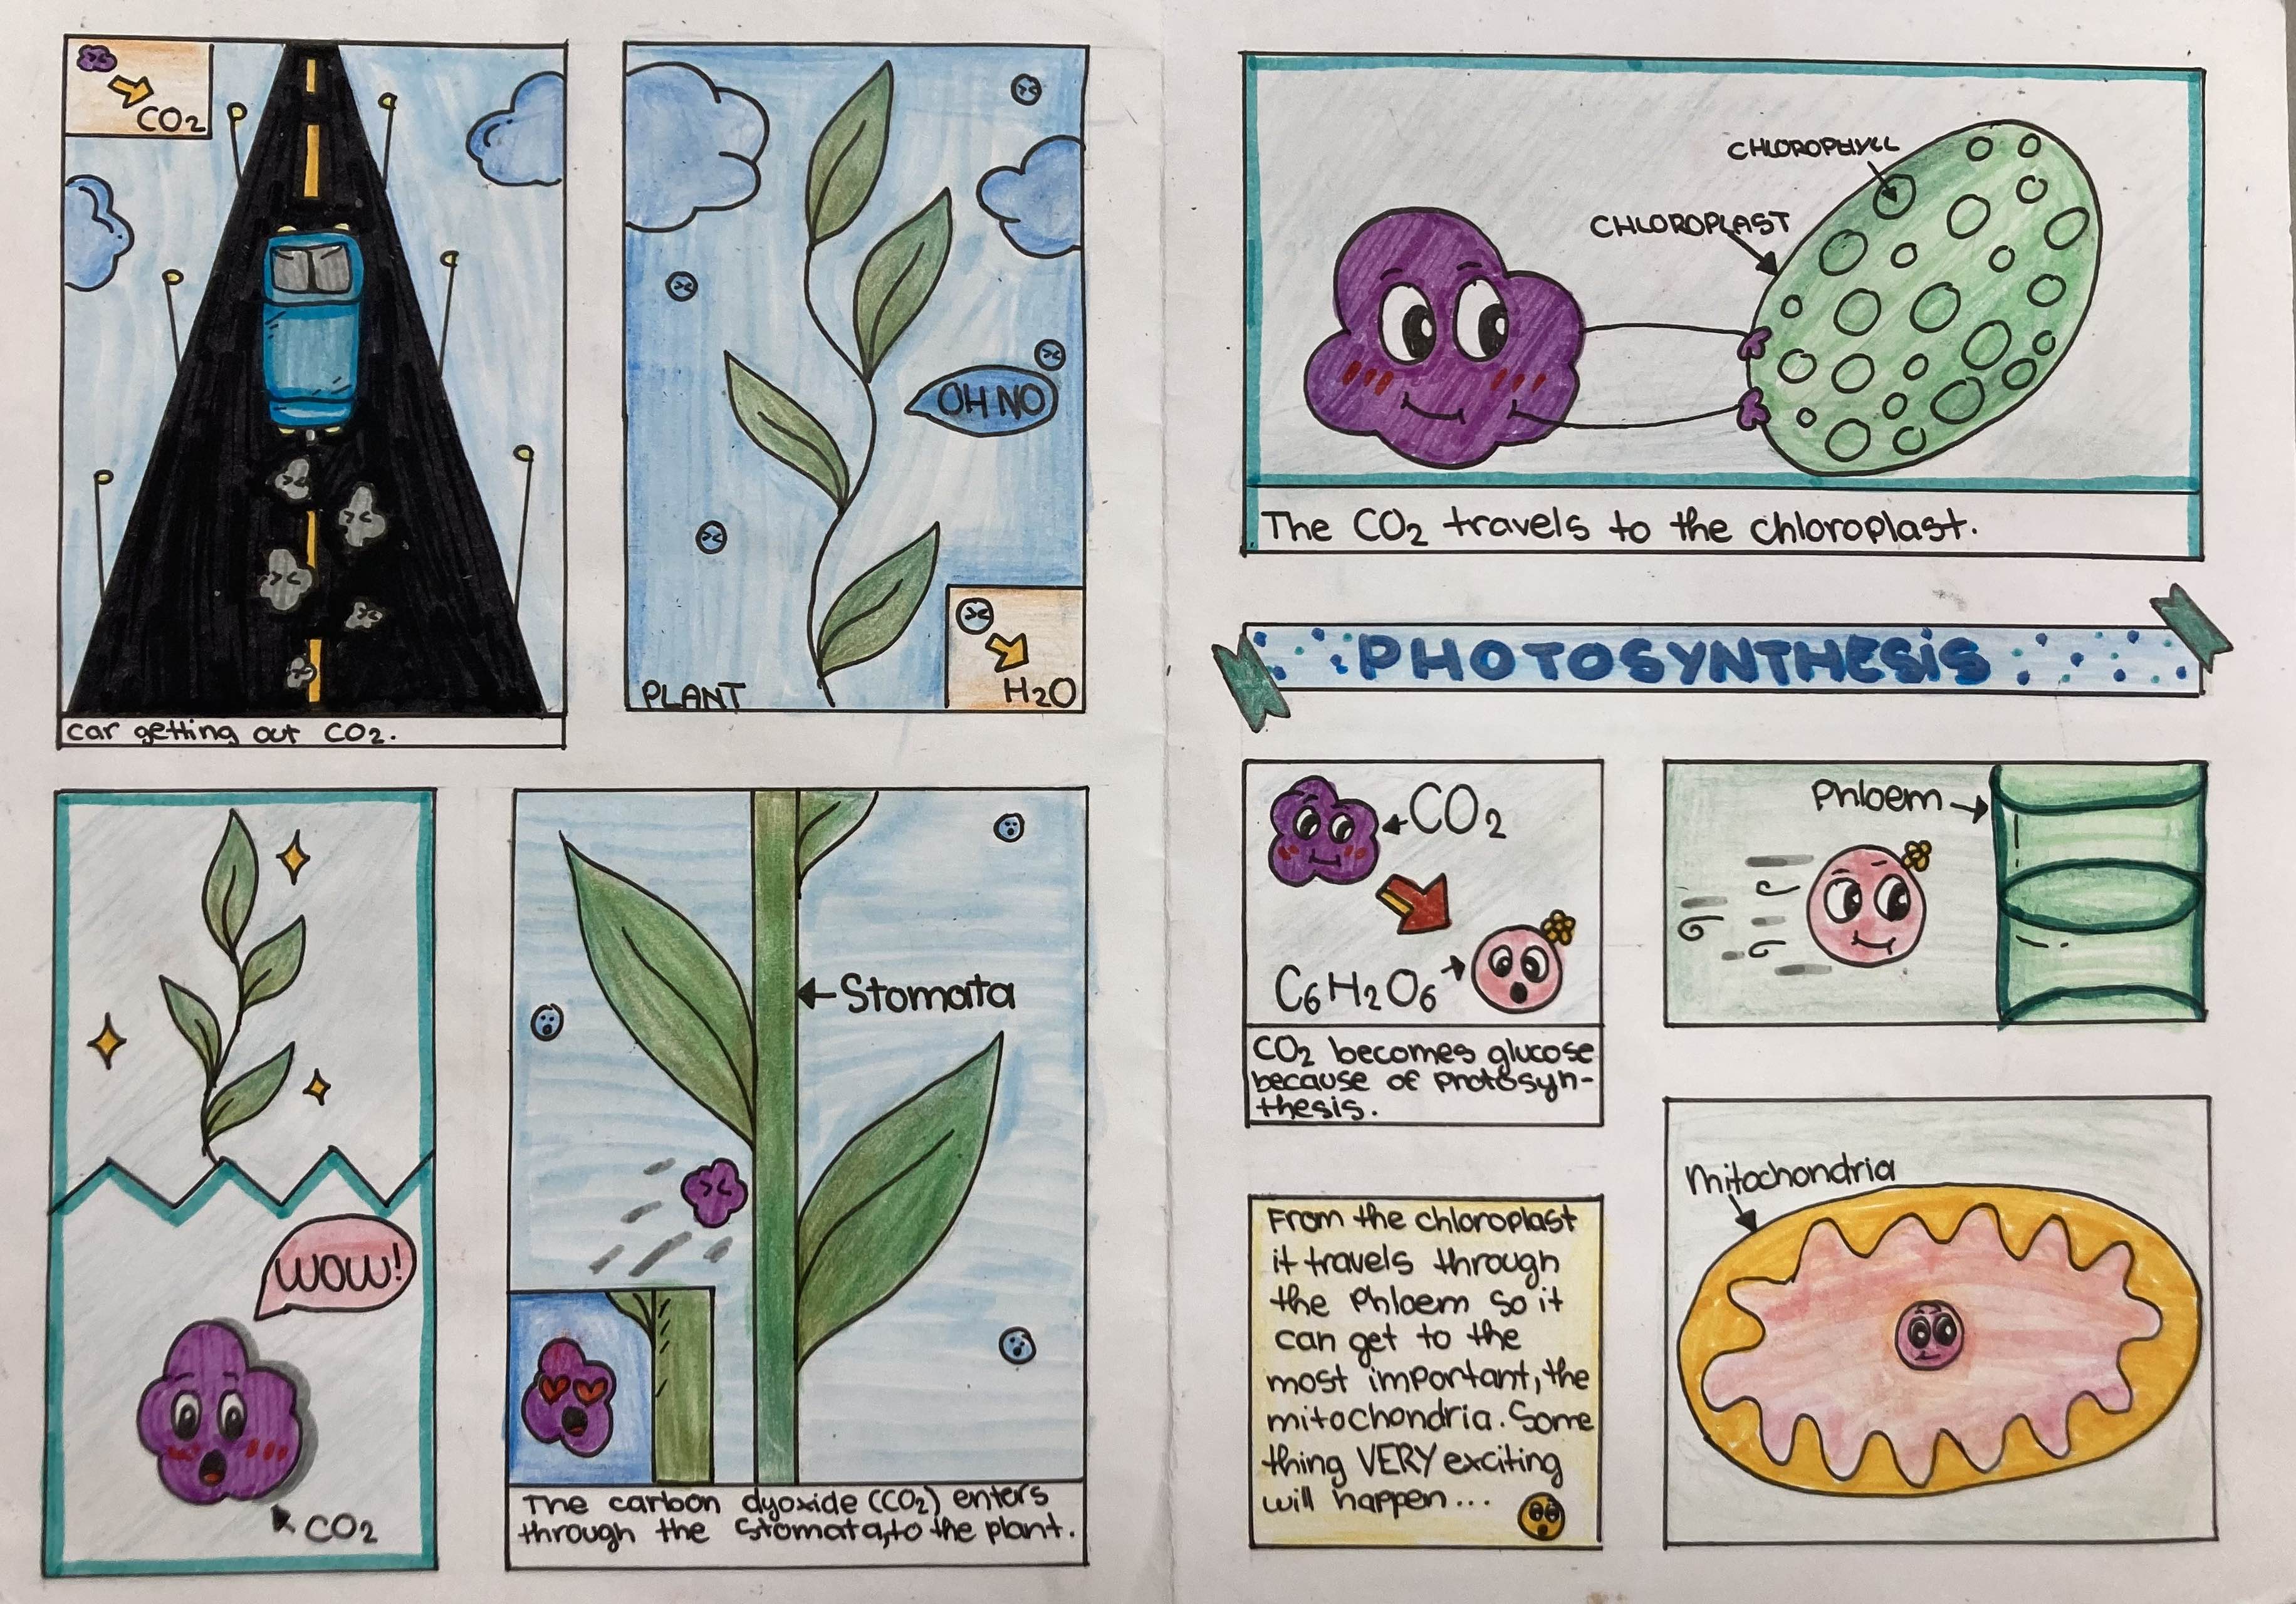 CO2
car getting out CO2.
OH NO
PLANT
H2O
WOW!
CO2
Stomata
The carbon dyoxide (CO2) enters
through the stomata, to the plant.
CHLOROPHYLL
CHLOROPLAST
The CO2 travels to the chloroplast.
PHOTOSYNTHESIS
CO2
C6H2O6
CO2 becomes glucose
because of protosyn-
thesis.
Phloem
From the chloroplast
it travels through
the Phloem so it
can get to the
most important, the
mitochondria. Some
thing VERY exciting
will happen...
mitochondria